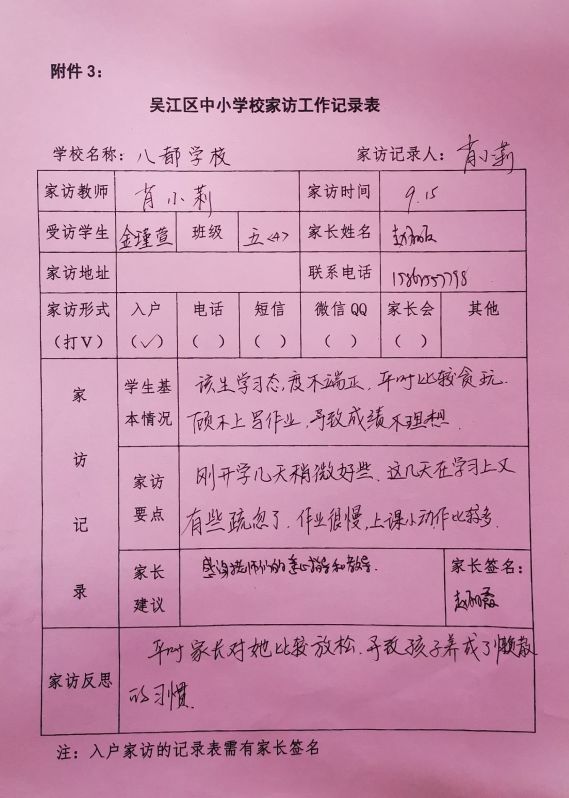 附件 3：
吴江区中小学校家访工作记录表
学校名称：八都学校 家访记录人：肖小莉
家访教师 肖小莉 家访时间 9.15
受访学生 金瑾萱 班级 五<4> 家长姓名
家访地址 联系电话
家访形式 入户 电话 短信 微信 QQ 家长会 其他
（打 V） （✓） （ ） （ ） （ ） （ ）
家访记录
学生基本情况
该生学习态度不端正，平时比较贪玩.
顾不上写作业，导致成绩不理想.
家访要点
刚开学几天稍微好些、这几天在学习上又
有些疏忽了.作业很慢，上课小动作比较多.
家长建议
感谢老师们的悉心指导和教导.
家长签名：
赵丽霞
家访反思
平时家长对她比较放松、导致孩子养成了懒散
的习惯.
注：入户家访的记录表需有家长签名